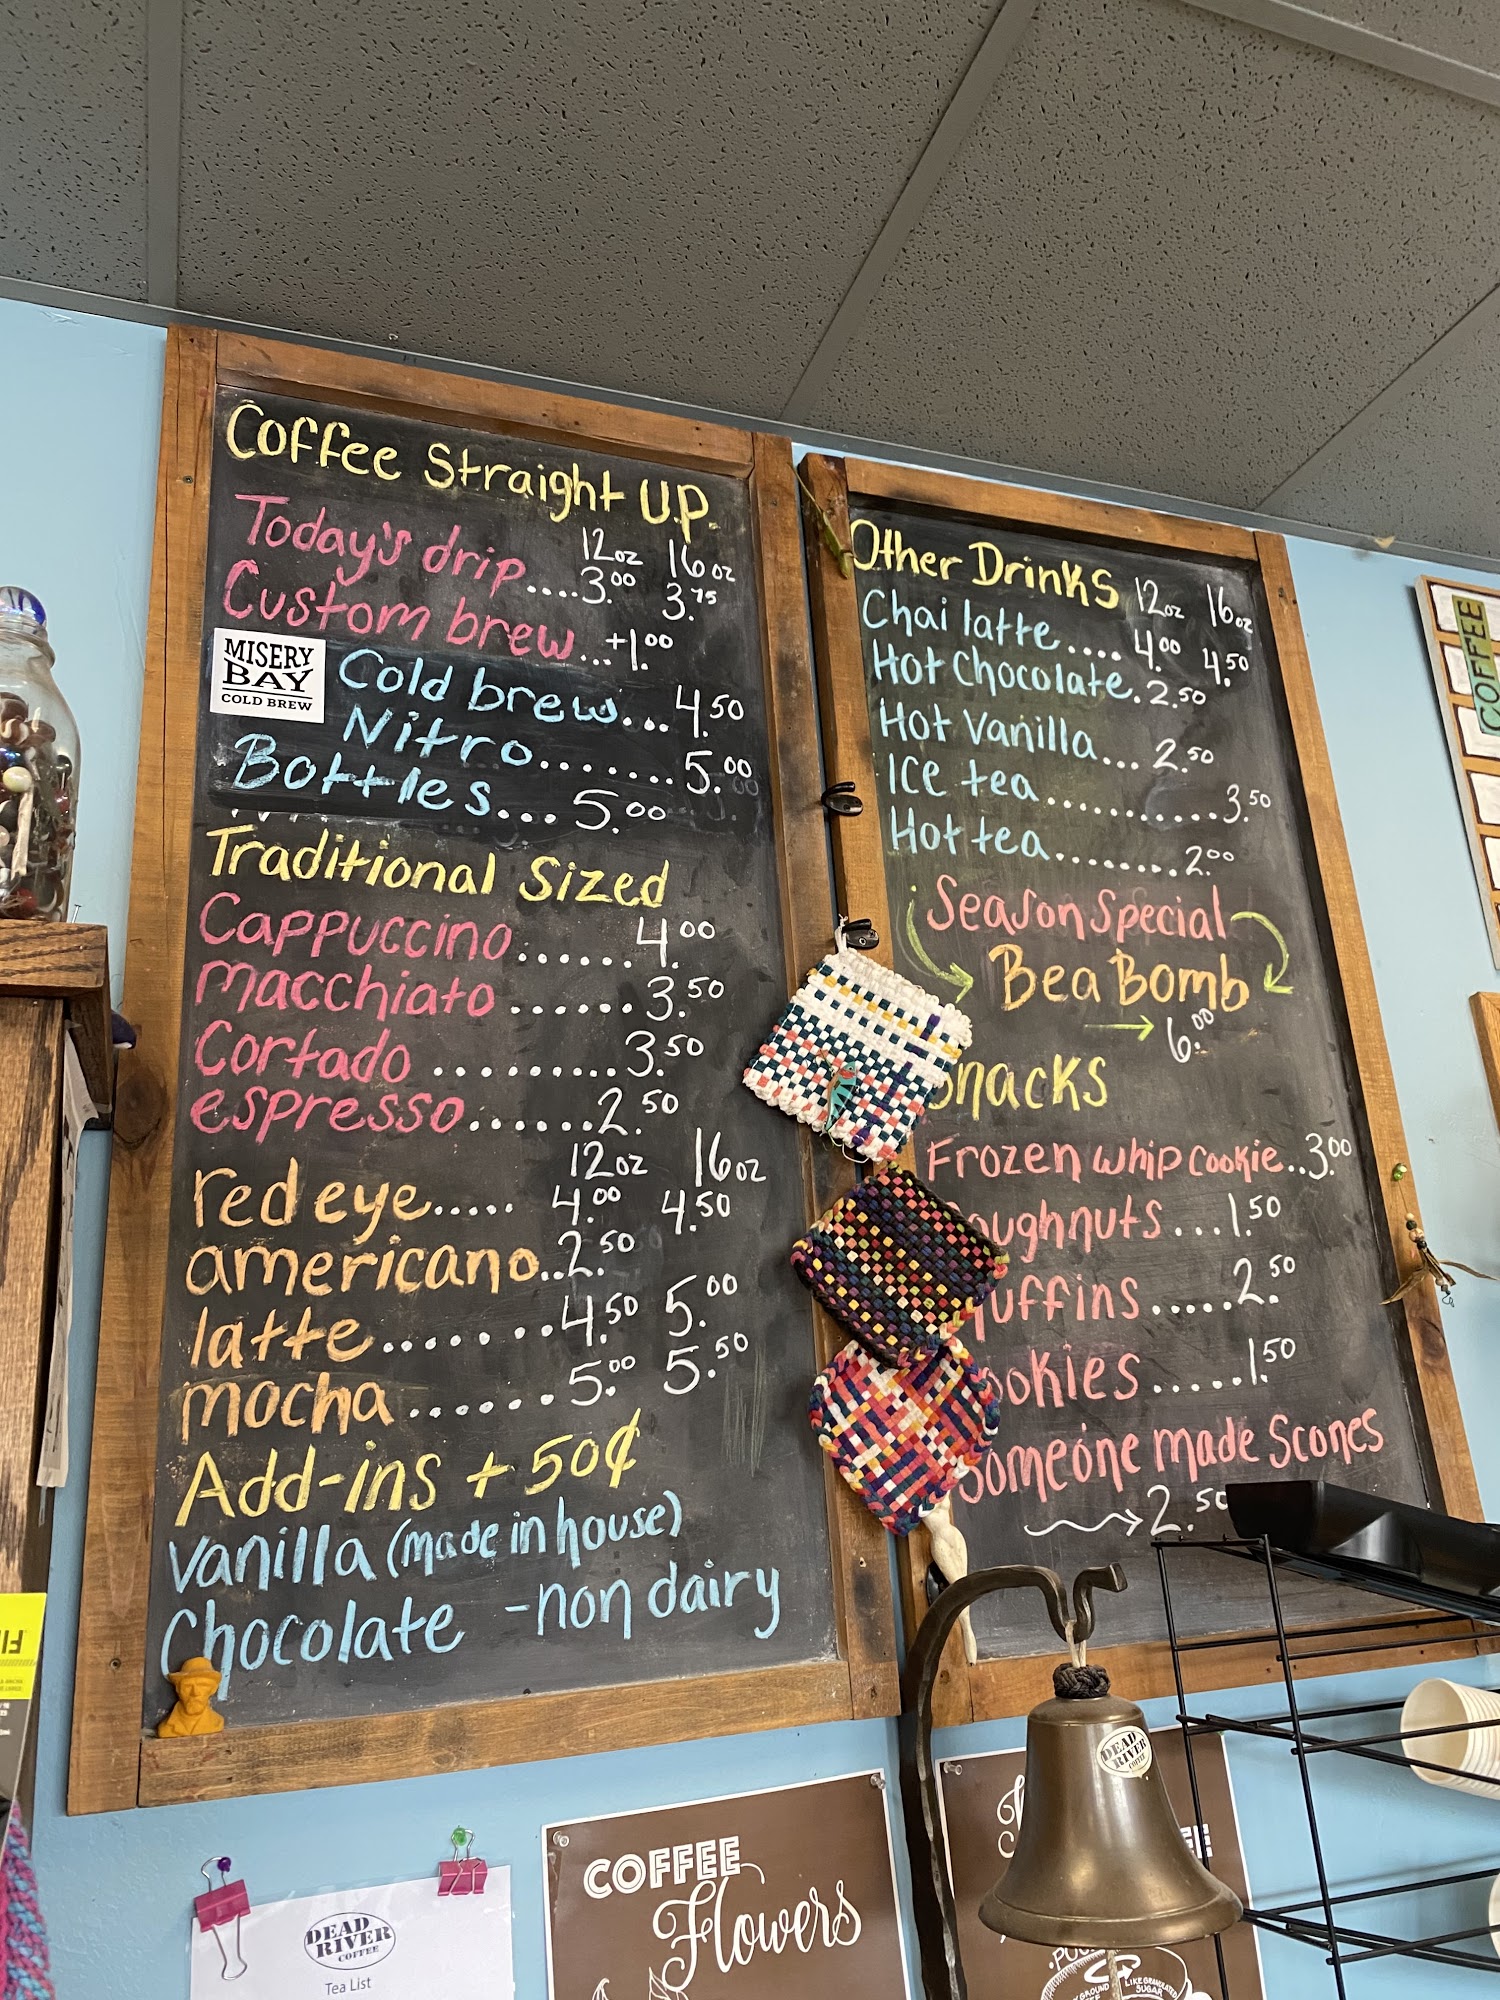 Coffee Straight U.P.
12oz 16oz
Today's drip....3.00 3.75
Custom brew...+1.00
MISERY
BAY
COLD BREW
Cold brew...4.50
Nitro.......5.00
Bottles...5.00
Traditional Sized
Cappuccino......4.00
macchiato......3.50
Cortado.........3.50
espresso......2.50
12oz 16oz
red eye.....4.00 4.50
americano..2.50
latte.......4.50 5.00
mocha......5.00 5.50
Add-ins + 50¢
vanilla (made in house)
Chocolate -non dairy
Other Drinks 12oz 16oz
Chai latte....4.00 4.50
Hot Chocolate.2.50
Hot Vanilla...2.50
Ice tea..........3.50
Hot tea........2.00
Season Special
Bea Bomb
6.00
Snacks
Frozen whip cookie..3.00
oughnuts...1.50
uffins.....2.50
ookies.....1.50
Someone made Scones
2.50
COFFEE
DEAD
RIVER
COFFEE
Tea List
COFFEE
Flowers
DEAD
RIVER
COFFEE
LIKE GRANULATED
SUGAR